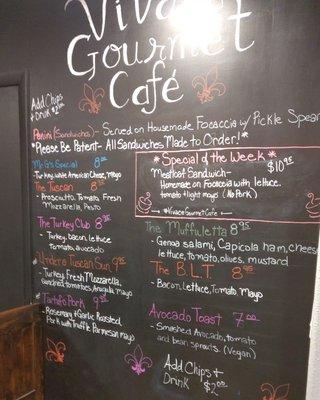 Vivace
Gourmet
Café
Add Chips
& Drink $2.00
Panini (Sandwiches) - Served on Housemade Focaccia w/ Pickle Spear
*Please Be Patent - All Sandwiches Made to Order!*
Mr G's Special 8
Turkey, white American Cheese, Mayo
The Tuscan 8
- Prosciutto, Tomato, Fresh
Mozzarella, Pesto
The Turkey Club 8
- Turkey, bacon, lettuce
tomato, avocado
Under a Tuscan Sun 9
- Turkey, Fresh Mozzarella,
Sundried tomatoes, Arugula, mayo
Tartufo Pork 9
- Rosemary & Garlic Roasted
Pork with Truffle Parmesan mayo
* Special of the Week *
Meatloaf Sandwich - $10.95
Homemade on Focaccia with lettuce,
tomato + light mayo (No Pork)
#VivaceGourmetCafe
The Muffuletta 8.95
- Genoa salami, Capicola ham, cheese
lettuce, tomato, olives, mustard
The B.L.T. 8.95
- Bacon, lettuce, Tomato, Mayo
Avocado Toast 7
- Smashed Avocado, tomato
and bean sprouts. (Vegan)
Add Chips &
Drink $2.00